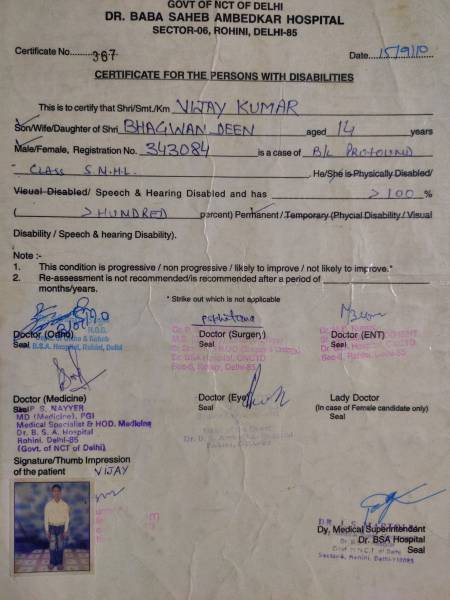 GOVT OF NCT OF DELHI
DR. BABA SAHEB AMBEDKAR HOSPITAL
SECTOR-06, ROHINI, DELHI-85
Certificate No. 367 Date 15/9/10
CERTIFICATE FOR THE PERSONS WITH DISABILITIES
This is to certify that Shri/Smt./Km VIJAY KUMAR
Son/Wife/Daughter of Shri BHAGWAN DEEN aged 14 years
Male/Female, Registration No. 343084 is a case of B/L PROFOUND
CLASS S.N.H.L. He/She is Physically Disabled/
Visual Disabled/ Speech & Hearing Disabled and has >100 %
( >HUNDRED percent) Permanent / Temporary (Phycial Disability / Visual
Disability / Speech & hearing Disability).
Note :-
1. This condition is progressive / non progressive / likely to improve / not likely to improve.*
2. Re-assessment is not recommended/is recommended after a period of
months/years.
* Strike out which is not applicable
Doctor (Ortho) Doctor (Surgery) Doctor (ENT)
Seal Seal Seal
H.O.D.
B.S.A. Hospital, Rohini, Delhi
Dr. BSA Hospital, GNCTD
Sec-6, Rohini, Delhi-85
Doctor (Medicine) Doctor (Eye) Lady Doctor
Seal Seal (In case of Female candidate only)
Seal
P S. NAYYER
MD (Medicine), PGI
Medical Specialist & HOD. Medicine
Dr. B. S. A. Hospital
Rohini, Delhi-85
(Govt. of NCT of Delhi)
Signature/Thumb Impression
of the patient VIJAY
Dy, Medical Superintendent
Dr. BSA Hospital
Seal
Govt. of N.C.T. of Delhi
Sector-6, Rohini, Delhi-110085